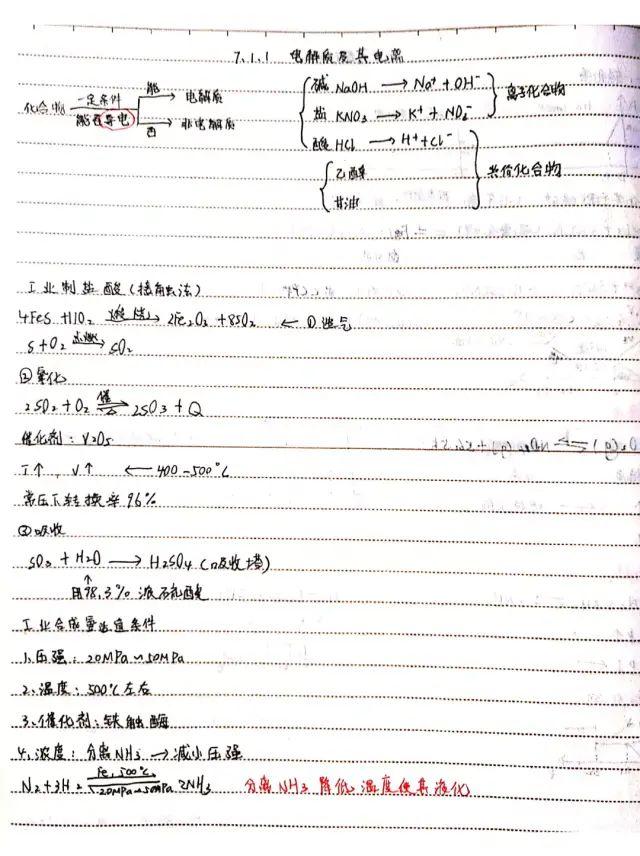 7.1.1 电解质及其电离
化合物 一定条件 能否导电 能→ 电解质 否→ 非电解质
碱 NaOH → Na⁺ + OH⁻
盐 KNO₃ → K⁺ + NO₃⁻
离子化合物
酸 HCl → H⁺ + Cl⁻
乙醇
甘油
共价化合物
工业制盐酸(接触法)
4FeS + 11O₂ 煅烧→ 2Fe₂O₃ + 8SO₂ ← ①造气
S + O₂ 点燃→ SO₂
②氧化
2SO₂ + O₂ 催 △ ⇌ 2SO₃ + Q
催化剂:V₂O₅
T↑,V↑ ← 400-500℃
常压下转换率96%
③吸收
SO₃ + H₂O → H₂SO₄(吸收塔)
↑
用98.3%浓硫酸
工业合成氨适宜条件
1.压强:20MPa~50MPa
2.温度:500℃左右
3.催化剂:铁触酶
4.浓度:分离NH₃ → 减小压强
N₂ + 3H₂ Fe, 500℃ ⇌ 20MPa~50MPa 2NH₃ 分离NH₃ 降低温度使其液化